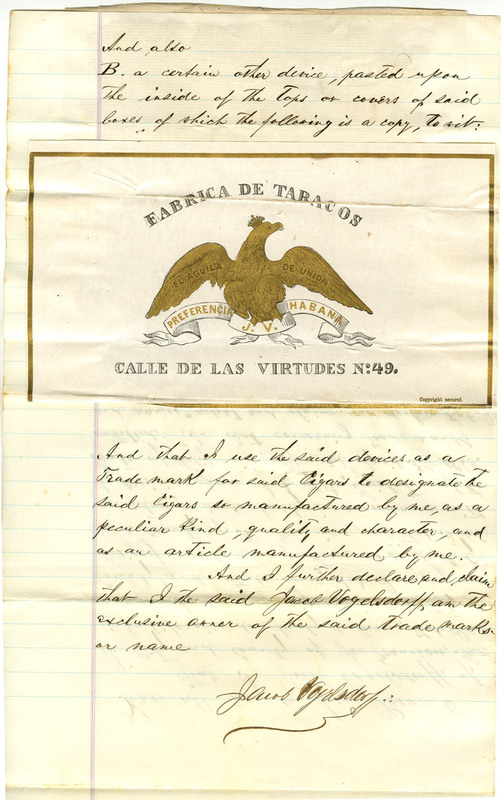 And also
B. a certain other device, pasted upon
the inside of the Tops or covers of said
boxes of which the following is a copy, to wit:
FABRICA DE TABACOS
EL AGUILA DE UNION
PREFERENCIA J. V. HABANA
CALLE DE LAS VIRTUDES Nº:49.
Copyright secured.
And that I use the said devices as a
Trade mark for said Cigars to designate the
said Cigars so manufactured by me, as a
peculiar kind, quality, and character, and
as an article manufactured by me.
And I further declare and claim
that I the said Jacob Vogelsdorff, am the
exclusive owner of the said trade marks
or name
Jacob Vogelsdorff.: